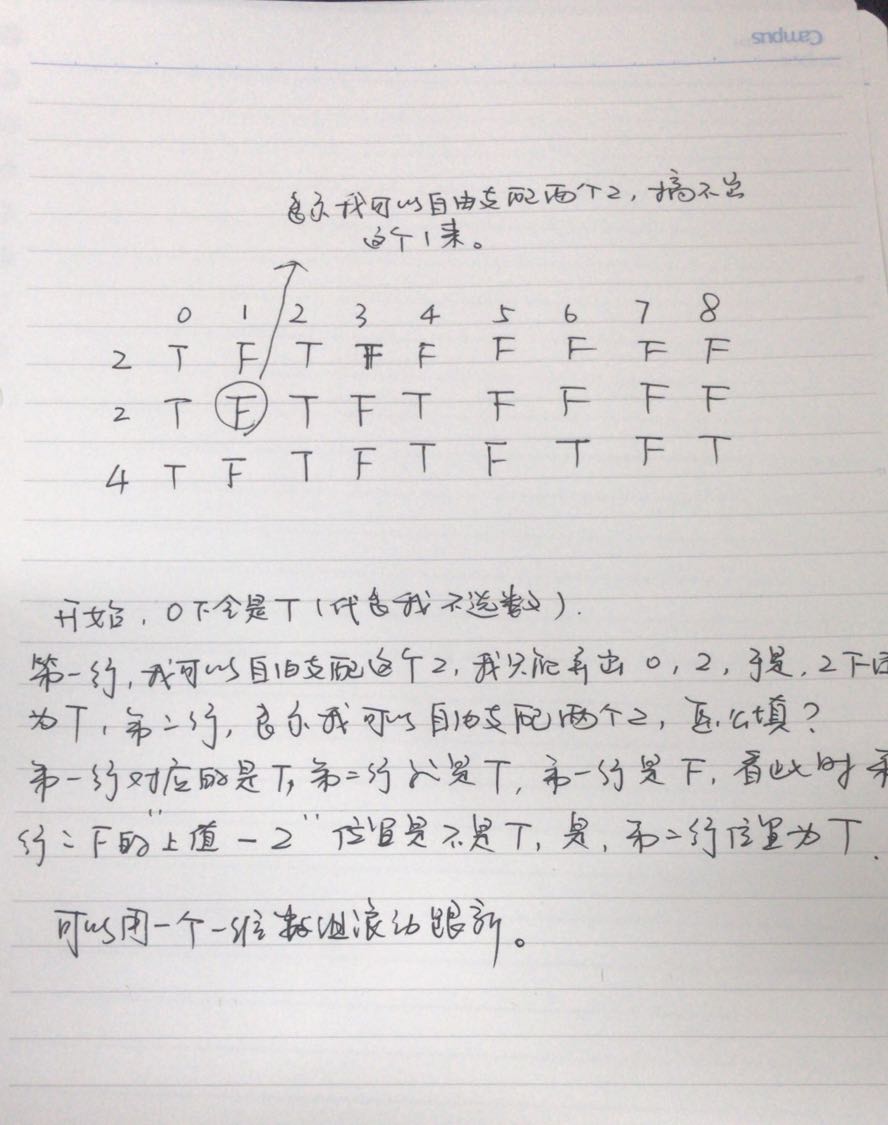 Campus
表示我可以自由支配两个2,搞不出
这个1来。
0 1 2 3 4 5 6 7 8
2 T F T F F F F F F
2 T F T F T F F F F
4 T F T F T F T F T
开始,0下全是T(代表我不选数).
第一行,我可以自由支配这个2,我只能弄出0,2,于是,2下面
为T,第二行,表示我可以自由支配两个2,怎么填?
第一行对应的是T,第二行必是T,第一行是F,看此时第
行:F的"上值-2"位置是不是T,是,第二行位置为T.
可以用一个一维数组滚动跟新。